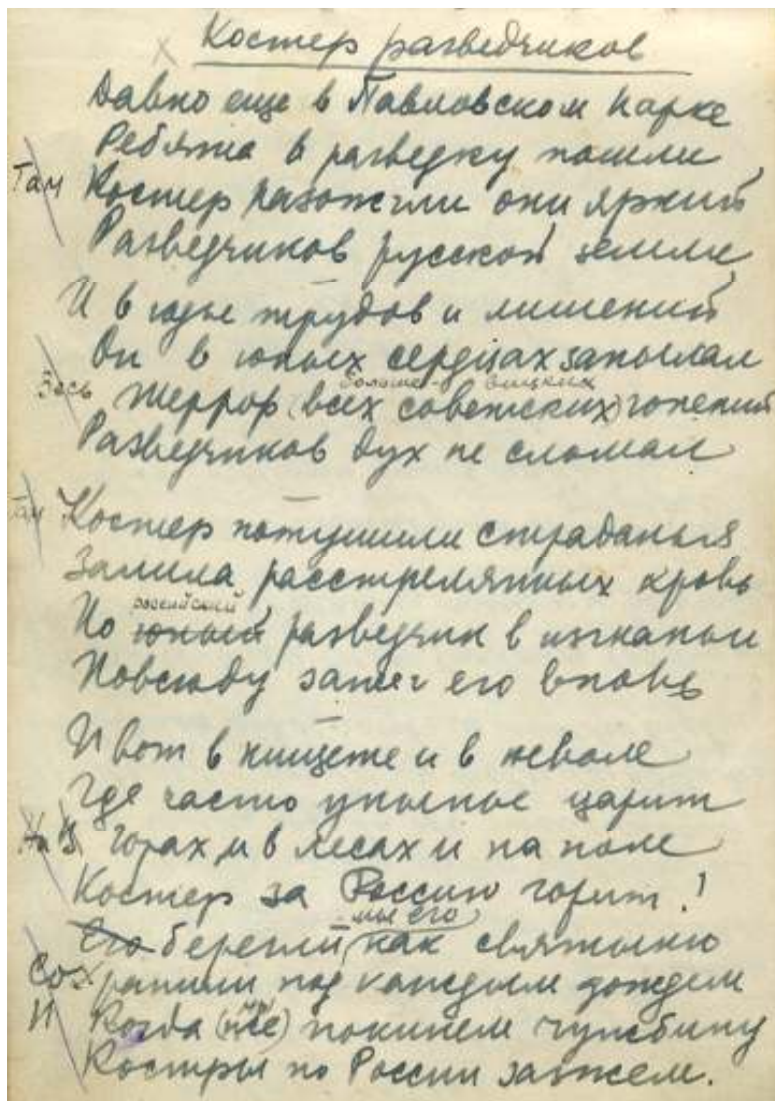 Костер разведчиков
Давно еще в Павловском парке
Ребята в разведку пошли
Там Костер разожгли они яркий
Разведчиков русской земли
И в годы трудов и лишений
Он в юных сердцах запылал
больше- вицких
Здесь террор (всех советских) гонений
Разведчиков дух не сломал
Там Костер потушили страданья
Залила расстрелянных кровь
российский
Но юный разведчик в изгнаньи
Повсюду зажег его вновь
И вот в нищете и в неволе
Где часто унынье царит
На В горах и в лесах и на поле
Костер за Россию горит!
мы его
Его берегли как святыню
Сохранили под каждым дождем
И Когда (все) покинем чужбину
Костры по России зажжем.